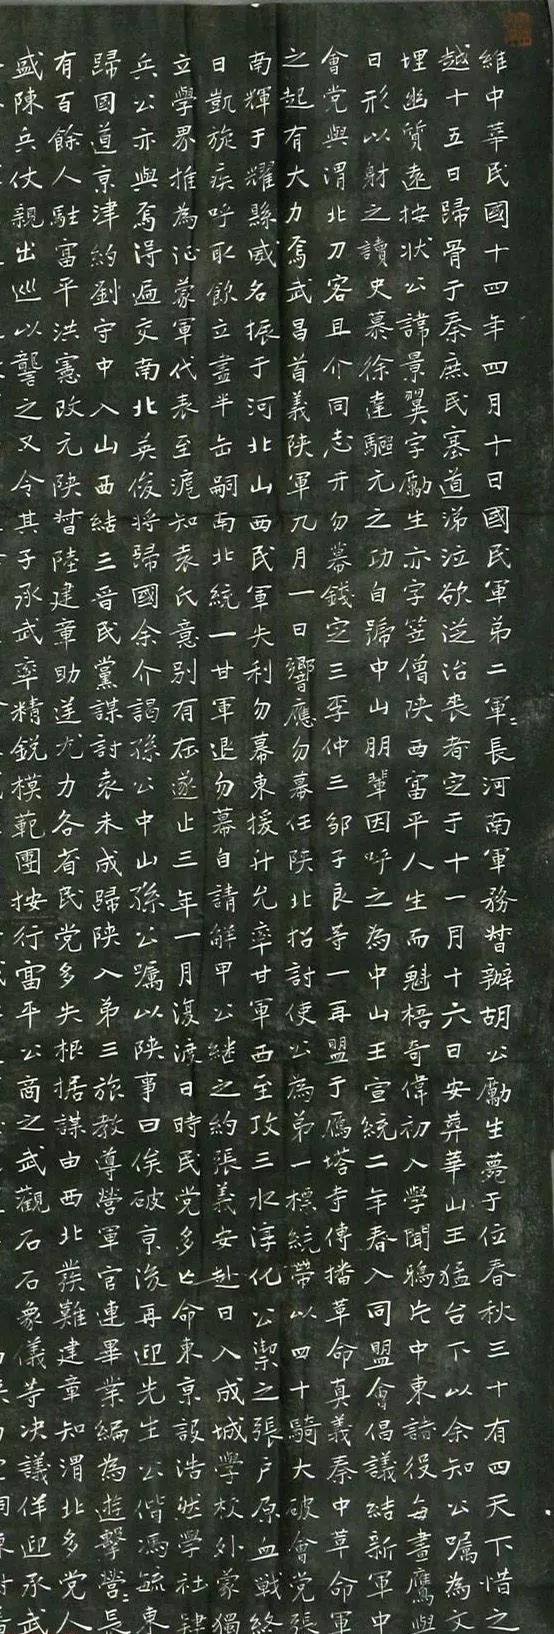 維中華民國十四年四月十日國民軍第二軍〻長河南軍務督辦胡公勵生薨于位春秋三十有四天下惜之
越十五日歸骨于秦庶民塞道涕泣欲從治喪者定于十一月十六日安葬華山王猛台下以余知公囑為文
埋幽質遠按狀公諱景翼字勵生亦字笠僧陝西富平人生而魁梧奇偉初入學聞鴉片中東諸役每畫鷹與
日形以射之讀史慕徐達驅元之功自號中山朋輩因呼之為中山王宣統二年春入同盟會倡議結新軍中
會党與渭北刀客且介同志井勿幕錢定三李仲三鄒子良等一再盟于鴈塔寺傳播革命真義秦中革命軍
之起有大力焉武昌首義陝軍九月一日響應勿幕任陝北招討使公為第一標統帶以四十騎大破會党張
南輝于耀縣威名振于河北山西民軍失利勿幕東援升允率甘軍西至攻三水淳化公禦之張戶原血戰終
日凱旋疾呼取飲立盡半缶嗣南北統一甘軍退勿幕自請解甲公繼之約張義安赴日入成城學校外蒙獨
立學界推為征蒙軍代表至滬知袁氏意別有在遂止三年一月復渡日時民党多亡命東京設浩然學社肄
兵公亦與焉得遍交南北英俊將歸國余介謁孫公中山孫公囑以陝事曰俟破京後再迎先生公偕馮毓東
歸國道京津約劉守中入山西結三晉民黨謀討袁未成歸陝入第三旅教導營軍官連畢業編為遊擊營〻長
有百餘人駐富平洪憲改元陝督陸建章助逆尤力各省民党多失根据謀由西北發難建章知渭北多党人
盛陳兵仗親出巡以讋之又令其子承武率精銳模範團按行富平公商之武觀石石象儀等决議佯迎承武